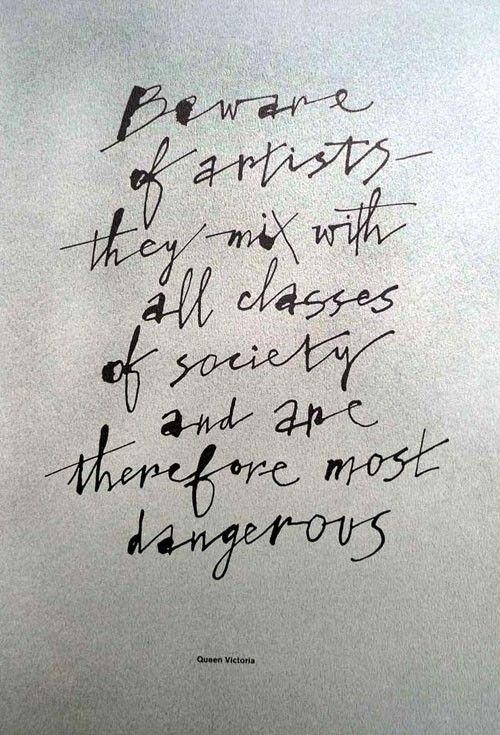 Beware
of artists—
they mix with
all classes
of society
and are
therefore most
dangerous
Queen Victoria